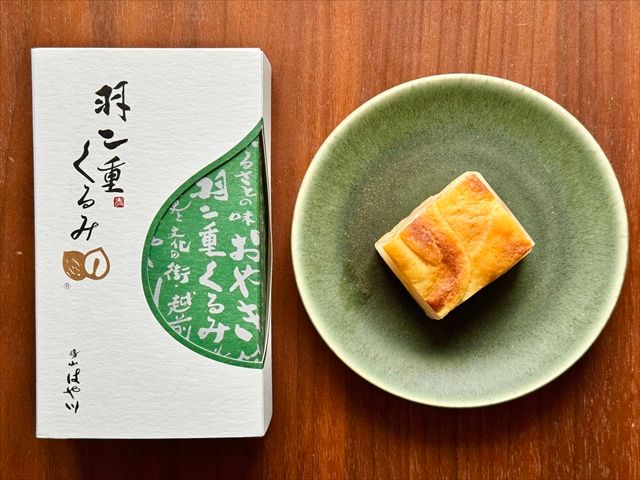 羽二重くるみ
®
勝山はや川
るさとの味
おやき
羽二重くるみ
と文化の街・越前